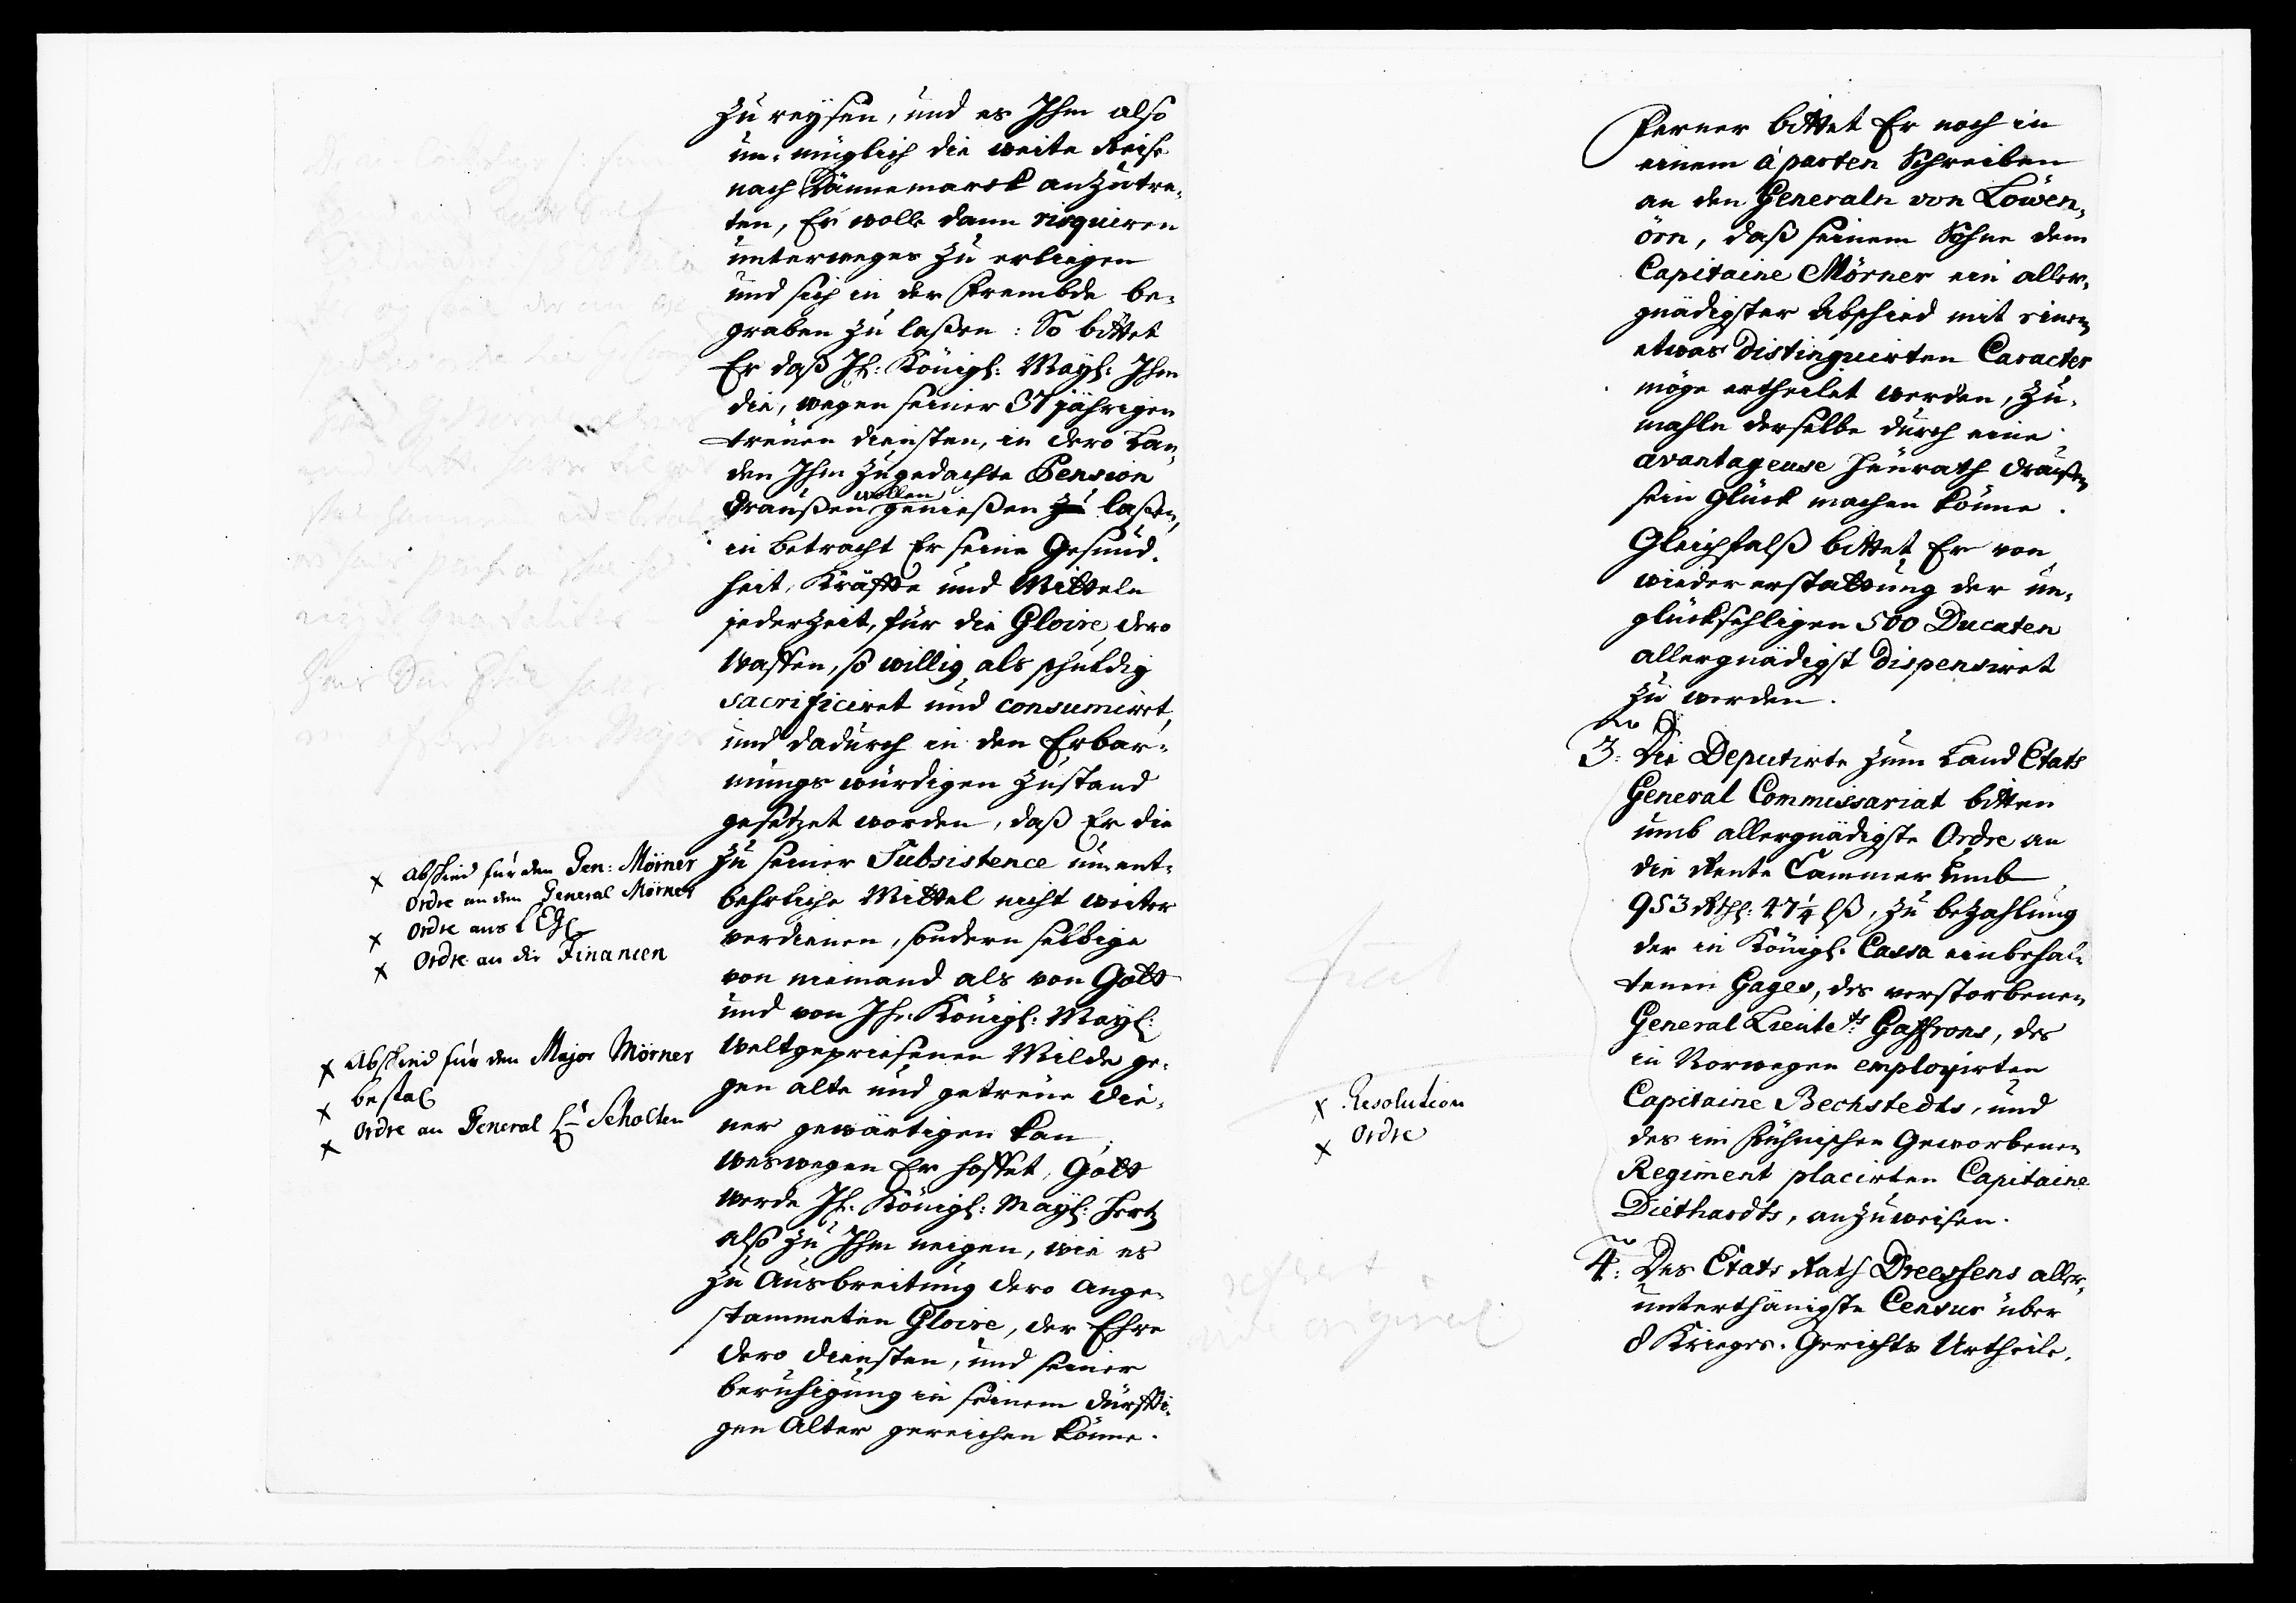 zu reÿsen, und es Ihm also
un-müglich die weite Reise
nach Dännemarck anzutre-
ten, Er wolle dann risquiren
unterweges zu erliegen
und sich in der Frembde be-
graben zu laßen: So bittet
Er daß Ih: Königl: Mayl: Ihm
die, wegen seiner 37 jährigen
treuen diensten, in dero Lan-
den Ihm zugedachte Pension
draußen wollen genießen zu laßen,
in betracht Er seine Gesund-
heit, Kräffte und Mitteln
jederzeit, für die Gloire dero
Waffen, so willig als schuldig
sacrificiret und consumiret,
und dadurch in den Erbar-
mungs würdigen Zustand
gesetzet worden, daß Er die
zu seiner Subsistence un ent-
behrliche Mittel nicht weiter
verdienen, sondern selbige
von niemand als von Gott
und von Ihr. Königl: Mayl:
Weltgepriesenen Milde ge-
gen alte und getreue Die-
ner gewärtigen kan,
weswegen Er hoffet, Gott
werde Ih. Königl: Mayl: Hertz
also zu Ihm neigen, wie es
zu Ausbreitung dero ange-
stammeten Gloire, der Ehre
dero diensten, und seiner
beruhigung in seinem dürffti-
gen Alter gereichen könne.
x Abschied für den Gen: Mörner
Ordre an den General Mörner
x Ordre ans
x Ordre an die Financen
x Abschied für den Major Mörner
x bestal
x Ordre an General Lt Scholten
Ferner bittet Er noch in
einem à parten Schreiben
an den Generaln von Löwen-
örn, daß seinem Sohne dem
Capitaine Mörner ein aller-
gnädigster Abschied mit einem
etwas distinguirten Caracter
möge ertheilet werden, zu-
mahln derselbe durch eine
avantageuse Heurath draußen
sein Glück machen könne.
Gleichfalß bittet Er von
wieder erstattung der un-
glückseeligen 500 Ducaten
allergnädigst dispensiret
zu werden.
3: Die Deputirte zum Land Etats
General Commissariat bitten
umb allergnädigste Ordre an
die Rente Cammer umb
953 Rthl: 47¼ lß, zu bezahlung
der in Königl. Cassa einbehal-
tenen Gages, des verstorbenen
General Lieutets Gaffrons, des
in Norwegen employirten
Capitaine Bechstedts, und
des im Fühnischen Geworbenen
Regiment placirten Capitaine
Diethardts, anzuweisen.
4: Des Etats Rath Dreessens aller-
unterthänigste Censur über
8 Krieges-Gerichts Urtheile.
fiat
x Resolution
x Ordre